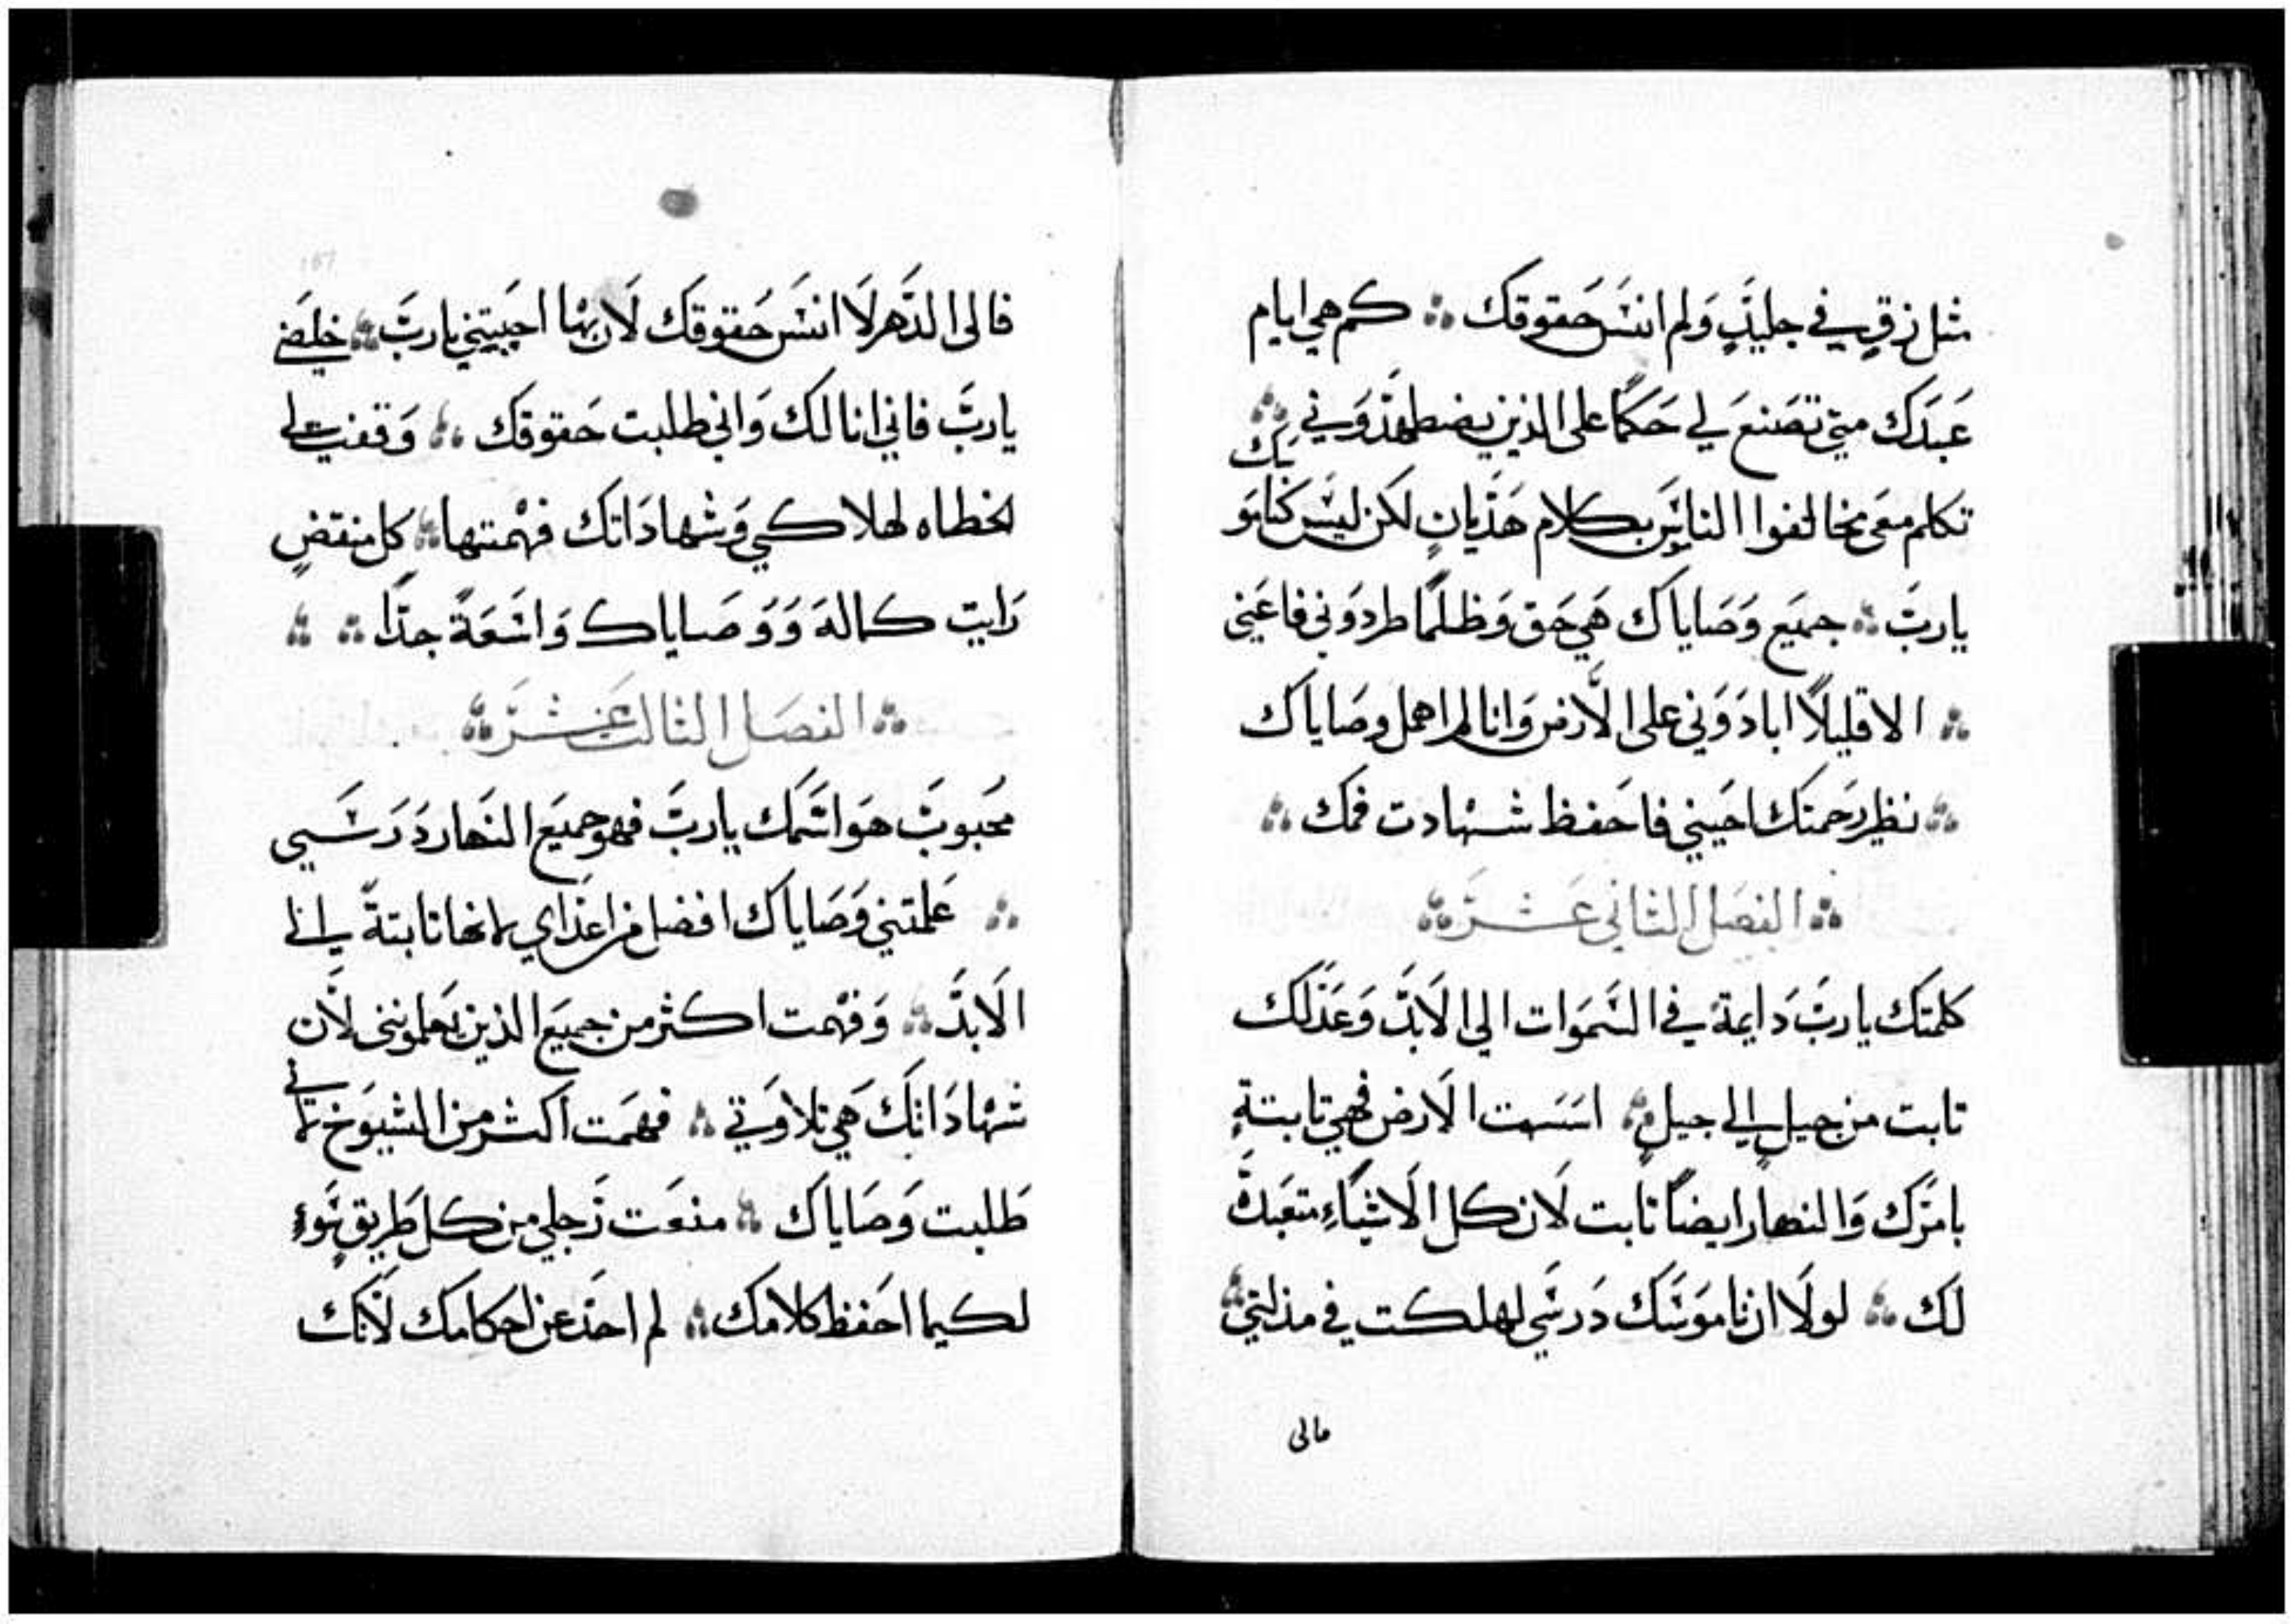 مثل زقٍ في جليدٍ وَلم انسَ حَقوقك ∴ كم هي ايام
عَبدَك متي تصَنعَ لي حَكمًا على الذين يضطهدَوني ∴
تكلم معَى مخالفوا الناموَس بكلام هَذيانٍ لكن ليسَ كناموَسك
ياربَ ∴ جميَع وَصَاياك هَي حَق وَظلمًا طردوَني فاعَنى
∴ الا قليلًا ابادَوَني على الَارض وَانا لم اهمل وصَاياك
∴ نظير رَحمتك احَيني فاحَفظ شهادت فمك ∴
∴ الفصَل الثاني عَشرَ ∴
كلمتك ياربَ دَايمة في السَموَات الي الَابدَ وَعَدَلك
تابت من جيلٍ الي جيلٍ ∴ اسَسَت الَارض فهي تابتةٍ
بامرَك وَالنهار ايضًا تابت لَان كل الَاشيَاءِ متعَبدة
لك ∴ لولَا ان ناموَسَك دَرسَي لهلكت في مذلتي ∴
مالى
فالى الدَهر لَا انسَى حَقوقك لَان بهَا احَييتني ياربَ ∴ خلصَني
ياربَ فاني انا لك وَاني طلبت حَقوقك ∴ وَقفت لي
الخطاه لهلاكي وَشهادَاتك فهمتها ∴ كل منقضٍ
رَايت كماله وَوَصَاياك وَاسَعَةً جدًا ∴ ∴
∴ الفصَل الثالث عَشرَ ∴
محَبوبَ هَوَ اسَمك ياربَ فهو جميَع النهار دَرَسَي
∴ عَلمتني وَصَاياك افضل من اعَدَاي لانها تابتةً الي
الَابدَ ∴ وَفهمت اكثر من جميَع الذين يعَلمونني لَان
شهادَاتك هَي تلاوَتي ∴ فهمَت اكثر من الشيوَخ لَاني
طَلبت وَصَاياك ∴ منعَت رَجلي من كل طَريق سَوءٍ
لكيما احَفظ كلامك ∴ لم احَد عَن احَكامك لَانك